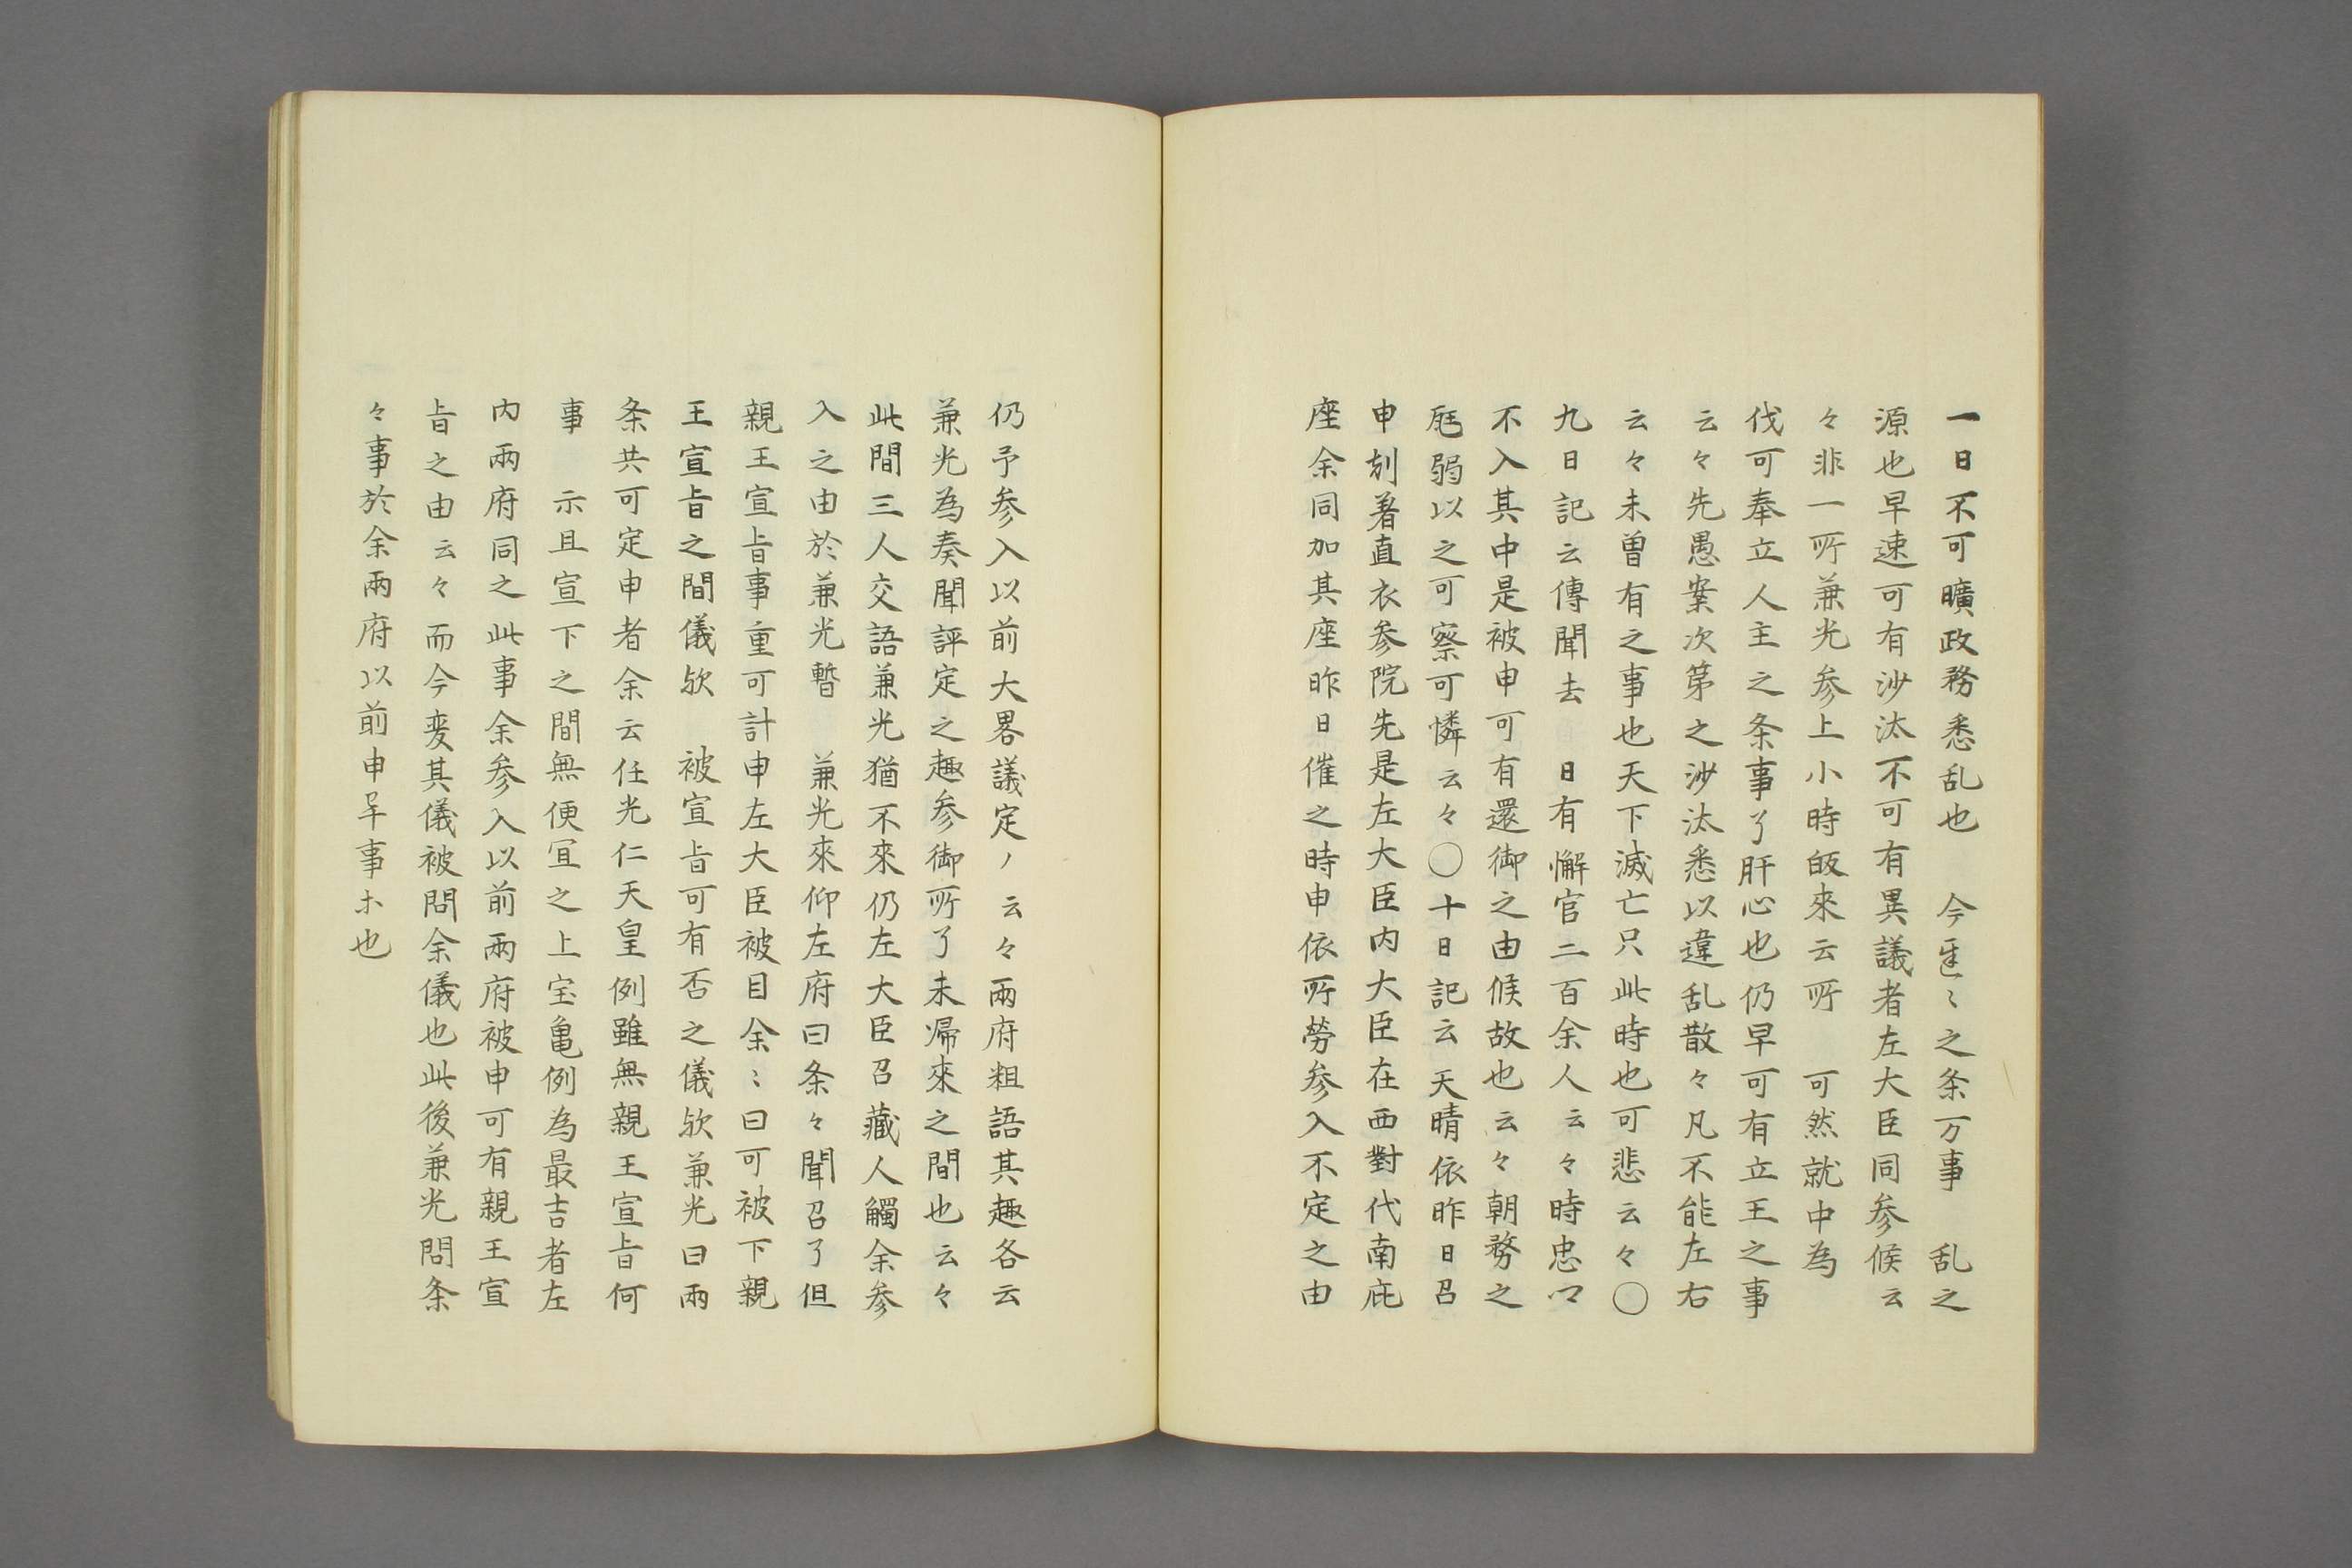 一日不可曠政務悉乱也　今〻之条万事　乱之
源也早速可有沙汰不可有異議者左大臣同参候云
々非一所兼光参上小時皈來云所　可然就中為
伐可奉立人主之条事了肝心也仍早可有立王之事
云々先愚案次第之沙汰悉以違乱散々凡不能左右
云々未曽有之事也天下滅亡只此時也可悲云々〇
九日記云傳聞去　日有懈官二百余人云々時忠
不入其中是被申可有還御之由候故也云々朝務之
尫弱以之可察可憐云々〇十日記云天晴依昨日召
申刻着直衣参院先是左大臣内大臣在西對代南庇
座余同加其座昨日催之時申依所勞参入不定之由
仍予参入以前大畧議定ノ云々兩府粗語其趣各云
兼光為奏聞評定之趣参御所了未帰來之間也云々
此間三人交語兼光猶不來仍左大臣召藏人觸余参
入之由於兼光暫　兼光來仰左府曰条々聞召了但
親王宣旨事重可計申左大臣被目余〻曰可被下親
王宣旨之間儀欤　被宣旨可有否之儀欤兼光曰兩
条共可定申者余云任光仁天皇例雖無親王宣旨何
事　示且宣下之間無便冝之上宝亀例為最吉者左
内兩府同之此事余参入以前兩府被申可有親王宣
旨之由云々而今変其儀被問余儀也此後兼光問条
々事於余兩府以前申早事ホ也